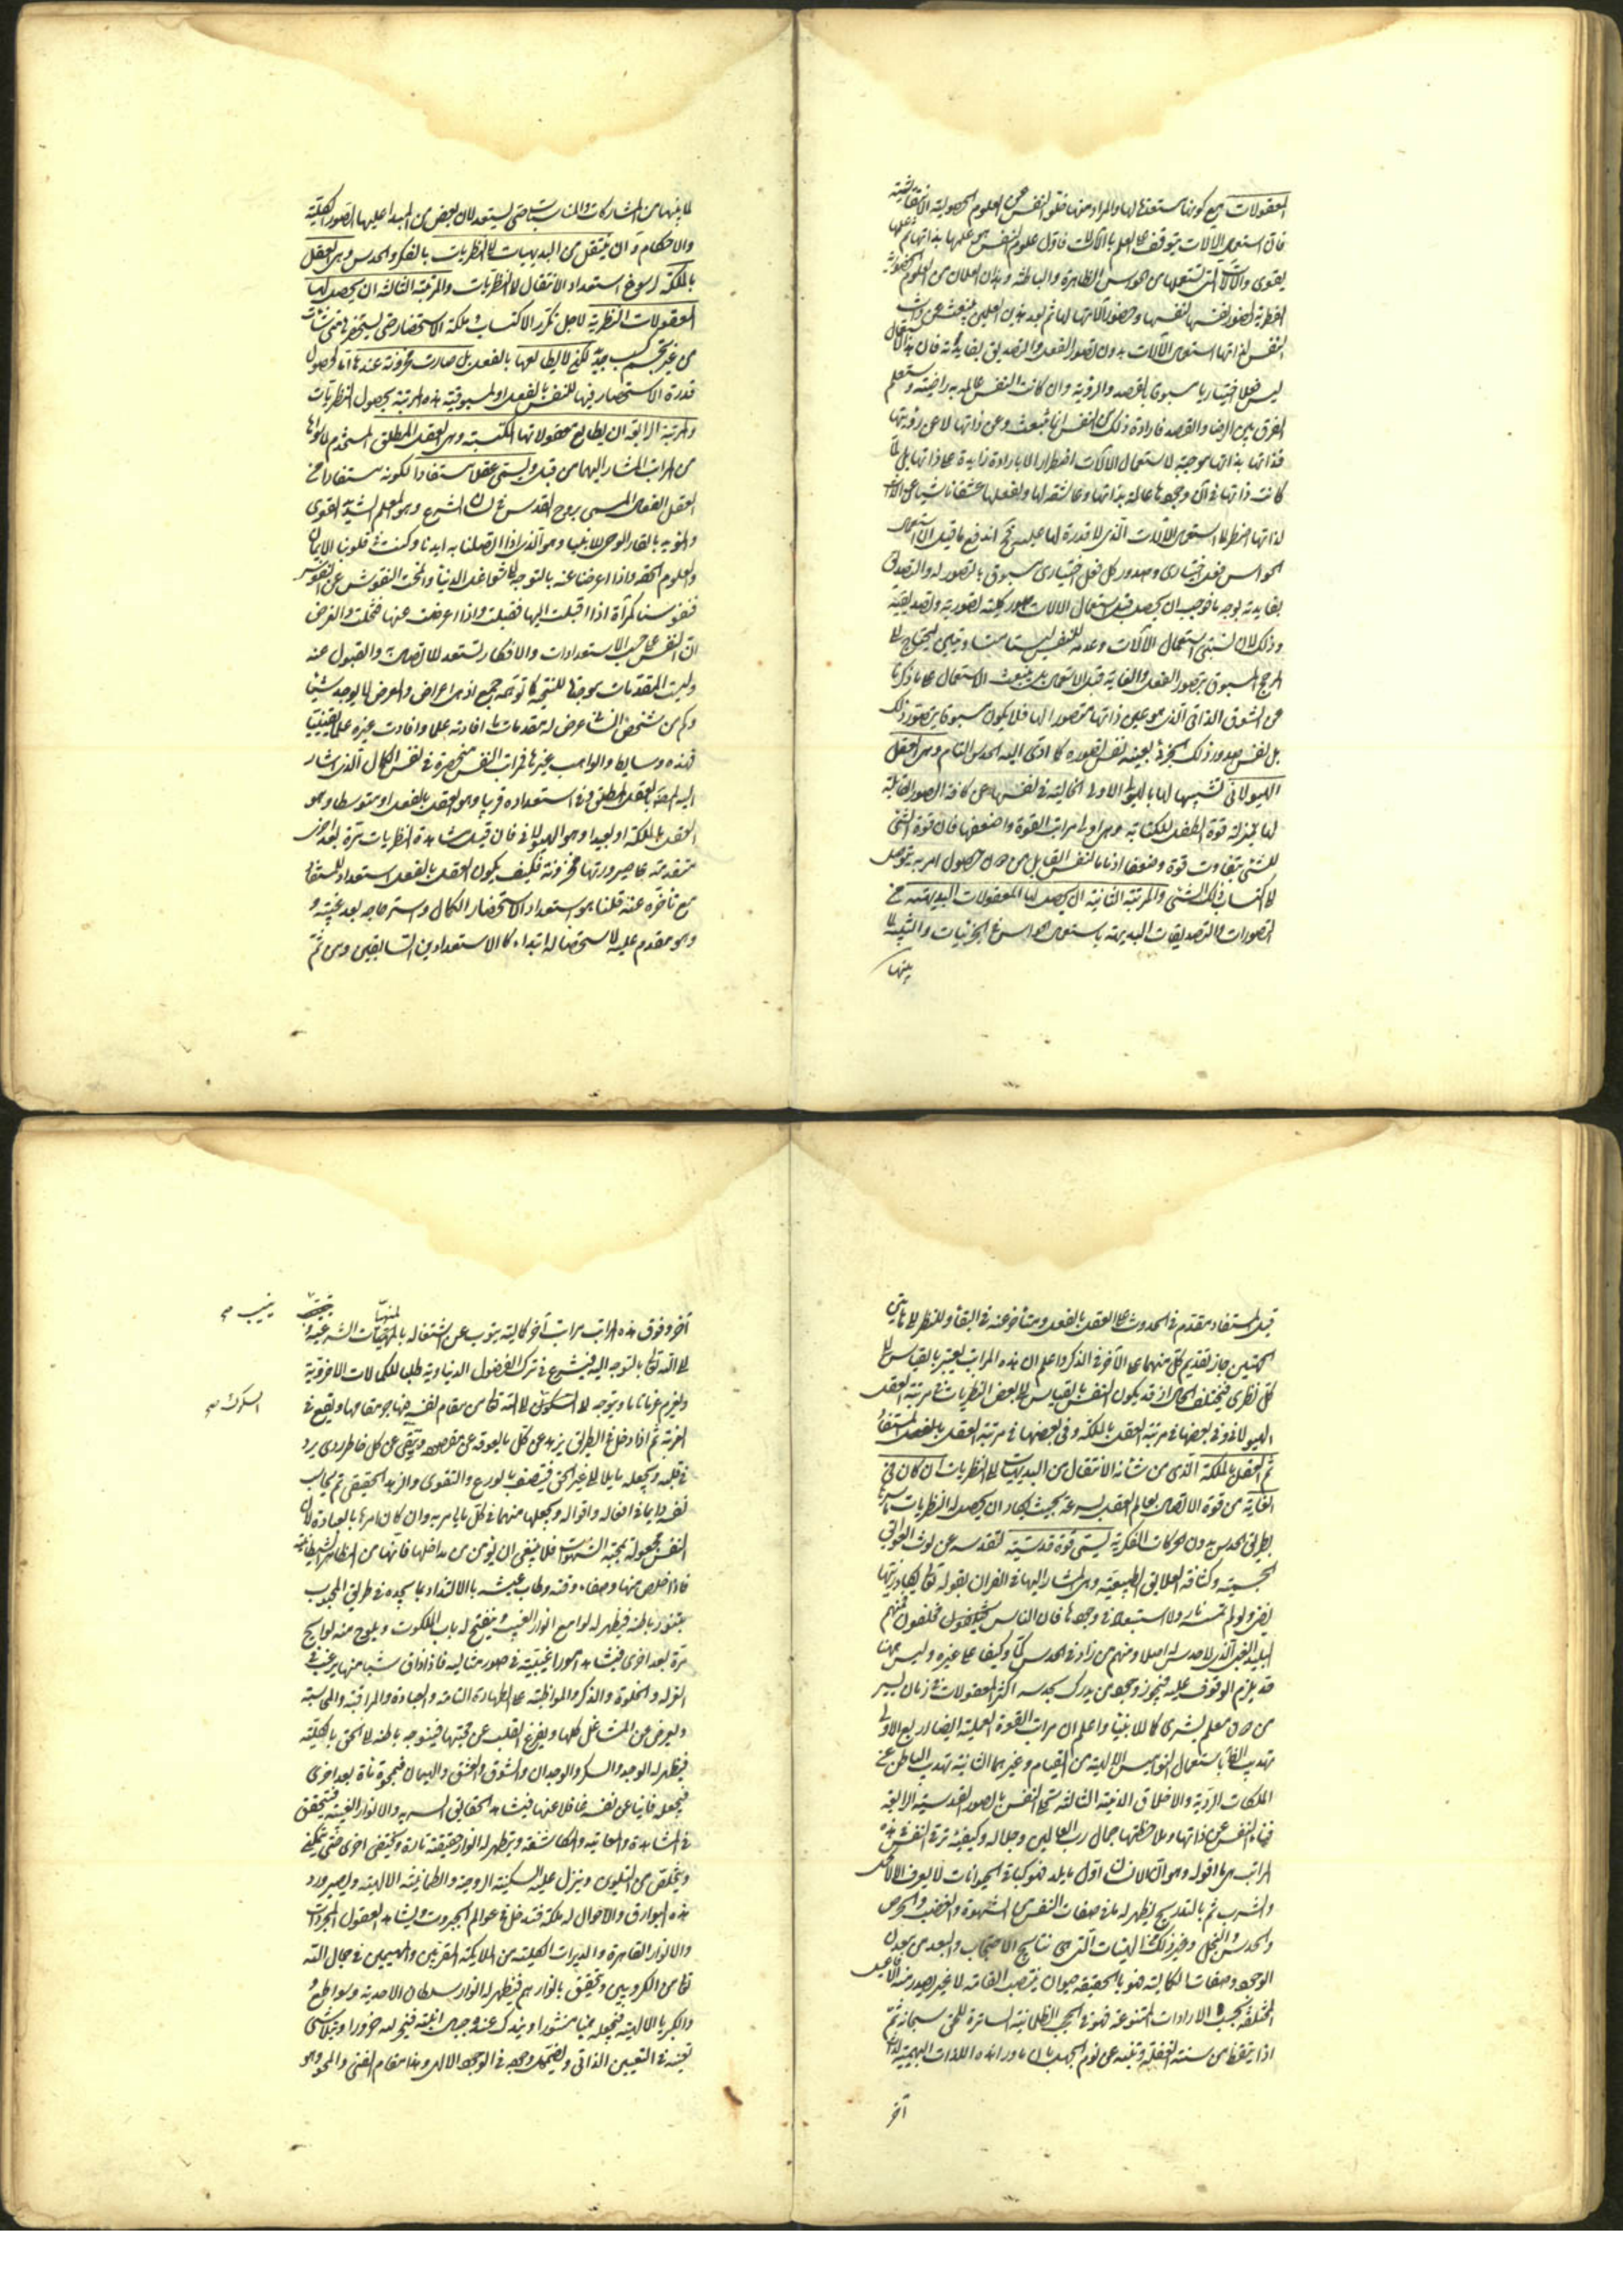 المعقولات مع كونها مستعدة لها والمراد منها خلو النفس عن العلوم الحصولية الانتقاشية
فان استعمال الآلات يتوقف على العلم بالآلات فاول علوم النفس هو علمها بذاتها ثم علمها
بقوى والآلات التي تستعملها من الحواس الظاهرة والباطنة وهذان العلمان من العلوم الحضورية
الفطرية لحضور نفسها لنفسها وحضور آلاتها لها ثم بعد هذين العلمين ينبعث عن ذات
النفس لذاتها استعمال الآلات بدون تصور الفعل والتصديق بفايدته فان هذا الاستعمال
ليس فعلا اختياريا مسبوقا بالقصد والروية وان كانت النفس عالمة به راضية وستعلم
الفرق بين الرضا والقصد فارادة ذلك من النفس انما تنبعث عن ذاتها لا عن رؤيتها
فذاتها بذاتها موجبة لاستعمال الآلات اضطرارا لا بارادة زايدة على ذاتها بل لما
كانت ذاتها في آن وجودها عالمة بذاتها وعاشقة لها ولفعلها عشقا ناشيا عن الذات
لذاتها اضطر الى استعمال الآلات الذي لا قدرة لها عليه فح اندفع ما قيل ان استعمال
الحواس فعل اختيارى وصدور كل فعل اختيارى مسبوق بالتصور له والتصديق
بفايدته بوجه ما فوجب ان يحصل قبل استعمال الآلات صور كلية تصورية وتصديقية
وذلك لان نسبتي استعمال الآلات وعدمه للنفس ليستا متساويتين ليحتاج الى
المرجح المسبوق بتصور الفعل والغاية قبل الاستعمال بل ينبعث الاستعمال على ما ذكرنا
عن الشوق الذاتي الذي هو عين ذاتها متصورا لها فلا يكون مسبوقا بتصور ذلك
بل نفس صدور ذلك الجزئي بعينه نفس تصوره كما ادى اليه الحدس التام وهى العقل
الهيولاني لتشبيهها لها بالهيولى الاولى الخالية في نفسها عن كافة الصور القابلة
لها بمنزلة قوة الطفل للكتابة وهى اولى مراتب القوة واضعفها فان قوة الشئ
للشئ يتفاوت قوة وضعفا اذ ما بالنفس القابل من دون حصول امر به يتوصل
لاكتساب ذلك الشئ والمرتبة الثانية ان يحصل لها المعقولات البديهية من
التصورات والتصديقات البديهية باستعمال الحواس في الجزئيات والتنبه لما
بينها
لما بينها من المشاركات والمناسبات حتى يستعد لان يفيض من المبدا عليها الصور الكلية
والاحكام وان ينتقل من البديهيات الى النظريات بالفكر والحدس وهى العقل
بالملكة لرسوخ استعداد الانتقال الى النظريات والمرتبة الثالثة ان يحصل لها
المعقولات النظرية لاجل تكرر الاكتساب وملكة الاستحضار حتى يستحضرها متى شاءت
من غير تجشم كسب جديد لكن لا يطالعها بالفعل بل صارت مخزونة عندها اما لحصول
قدرة الاستحضار فيها للنفس بالفعل او لمسبوقية هذه المرتبة بحصول النظريات
والمرتبة الرابعة ان يطالع معقولاتها المكتسبة وهى العقل المطلق المستخدم لما سواها
من المراتب المشار اليها من قبل ويسمى عقلا مستفادا لكونه مستفادا من
العقل الفعال المسمى بروح القدس في لسان الشرع وهو المعلم الشديد القوى
والمؤيد بالقاء الوحي للانبيا وهو الذي اذا اتصلنا به ايدنا وكتب في قلوبنا الايمان
والعلوم الحقة واذا اعرضنا عنه بالتوجه الى شواغل الدنيا وانمحت النقوش عن النفوس
فنفوسنا كمرآة اذا اقبلت اليها قبلت واذا اعرضت عنها تخلت والغرض
ان النفس على حسب الاستعدادات والافكار تستعد للاتصال والقبول عنه
وليست المقدمات موجدة للنتيجة كما توهمه جمع اذ هى اعراض والعرض لا يوجد شيئا
وكم من شخص انساني عرض له مقدمات ما افادته علما وافادت غيره علما يقينيا
فهذه وسايط والواهب غيرها فمراتب النفس منحصرة في نفس الكمال الذي اشار
اليه المصنف بالعقل المطلق وفي استعداده قريبا وهو العقل بالفعل او متوسطا وهو
العقل بالملكة او بعيدا وهو الهيولاني فان قيل مشاهدة النظريات مرة بعد اخرى
متقدمة على صيرورتها مخزونة فكيف يكون العقل بالفعل استعدادا للمستفاد
مع تاخره عنه قلنا هو استعداد لاستحضار الكمال واسترجاعه بعد غيبته و
وهو مقدم عليه لا ستحضاله ابتداء كالاستعدادين السابقين ومن ثم
قيل المستفاد مقدم في الحدوث على العقل بالفعل ومتأخر عنه في البقاء وللنظر الى هاتين
الجهتين جاز تقديم كل منهما على الآخر في الذكر واعلم ان هذه المراتب تعتبر بالقياس الى
كل نظرى فيختلف الحال اذ قد يكون النفس بالقياس الى بعض النظريات في مرتبة العقل
الهيولاني وفي بعضها في مرتبة العقل بالملكة وفي بعضها في مرتبة العقل بالفعل او المستفاد
ثم العقل بالملكة الذي من شانه الانتقال من البديهيات الى النظريات ان كان في
الغاية من قوة الاتصال بعالم العقل بسرعة بحيث يكاد ان يحصل له النظريات باسرها
بطريق الحدس بدون الحركات الفكرية يسمى قوة قدسية لتقدسه عن لوث العوايق
الحسية وكثافة العلايق الطبيعية وهى المشار اليها في القران بقوله تعالى يكاد زيتها
يضئ ولو لم تمسسه نار ولا استبعاد في وجودها فان الناس مختلفون فمنهم
البليد الغبي الذي لا حدس له اصلا ومنهم من زاد في الحدس كما وكيفا على غيره وليس ههنا
حد يلزم الوقوف عليه فيجوز وجود من يدرك بحدسه اكثر المعقولات في زمان يسير
من دون معلم بشرى كالانبيا واعلم ان مراتب القوة العملية ايضا اربع الاولى
تهذيب الظاهر باستعمال النواميس الالهية من القيام وغيرهما الثانية تهذيب الباطن عن
الملكات الردية والاخلاق الدنية الثالثة تحلى النفس بالصور القدسية الرابعة
فناء النفس عن ذاتها وملاحظتها جمال رب العالمين وجلاله وكيفية ترقى النفس في هذه
المراتب هى ما اقوله وهو ان الانسان اول ما يلد فهو كباقي الحيوانات لا يعرف الا الاكل
والشرب ثم بالتدريج يظهر له باقي صفات النفس من الشهوة والغضب والحرص
والحسد والبخل وغير ذلك من الهيئات التي هى نتايج الاحتجاب والبعد من معدن
الوجود وصفاته الكمالية فهو بالحقيقة حيوان منتصب القامة لا غير يصدر منه الافاعيل
المختلفة بحسب الارادات المتنوعة فهو في الحجب الظلمانية الساترة للحق سبحانه ثم
اذا تيقظ من سنة الغفلة وتنبه عن نوم الجهل بان ما وراء هذه اللذات البهيمية لذات
آخر
آخر وفوق هذه المراتب مراتب أخر كمالية يتوب عن اشتغاله بالمنهيات الشرعية وينيب
الى الله تعالى بالتوجه اليه فيشرع في ترك الفضول الدنياوية طلبا للكمالات الاخروية
ويعزم عزما تاما ويتوجه الى السلوك الى الله تعالى من مقام نفسه فيهاجر مقامها ويقع في
الغربة ثم اذا دخل في الطريق يزهد عن كل ما يعوقه عن مقصوده ويتقى عن كل خاطر ردى يرد
في قلبه ويجعله مايلا الى غير الحق فيتصف بالورع والتقوى والزهد الحقيقي ثم يحاسب
نفسه دايما في افعاله واقواله ويجعلها متهما في كل ما يامر به وان كان امرها بالعبادة لان
النفس مجعولة بمحبة الشهوات فلا ينبغي ان يؤمن من مداخلها فانها من المظاهر الشيطانية
فاذا خلص منها وصفاء وقته وطاب عيشه بالالتذاد بما يجده في طريق المحبوب
يتنور باطنه فيظهر له لوامع انوار الغيب وينفتح له باب الملكوت ويلوح منه لوايح
مرة بعد اخرى فيشاهد امورا غيبية في صور مثالية فاذا ذاق شيئا منها يرغب في
العزلة والخلوة والذكر والمواظبة على الطهارة التامة والعبادة والمراقبة والمحاسبة
ويعرض عن المشاغل كلها ويفرغ القلب عن محبتها فيتوجه باطنه الى الحق بالكلية
فيظهر له الوجد والسكر والوجدان والشوق والعشق والهيمان فيمحوه تارة بعد اخرى
فيجعله فانيا عن نفسه غافلا عنها فيشاهد الحقايق السرية والانوار الغيبية فيتحقق
في المشاهدة والمعاينة والمكاشفة ويظهر له انوار حقيقة تارة وتختفي اخرى حتى يتمكن
ويتخلص من التلوين وينزل عليه السكينة الروحية والطمأنينة الالهية ويصير ورود
هذه البوارق والاحوال له ملكة فيدخل في عوالم الجبروت ويشاهد العقول المجردة
والانوار القاهرة والمدبرات الكلية من الملايكة المقربين والمهيمين في جمال الله
تعالى من الكروبيين ويتحقق بانوارهم فيظهر له انوار سلطان الاحدية وسواطع
والكبريا الالهية فيجعله هباء منثورا ويندك عنده جبال انيته فيخر لله خرورا ويتلاشى
تعينه في التعين الذاتي ويضمحل وجوده في الوجود الالهى وهذا مقام الفنى والمحو وهو
ينيب صح
السلوك صح